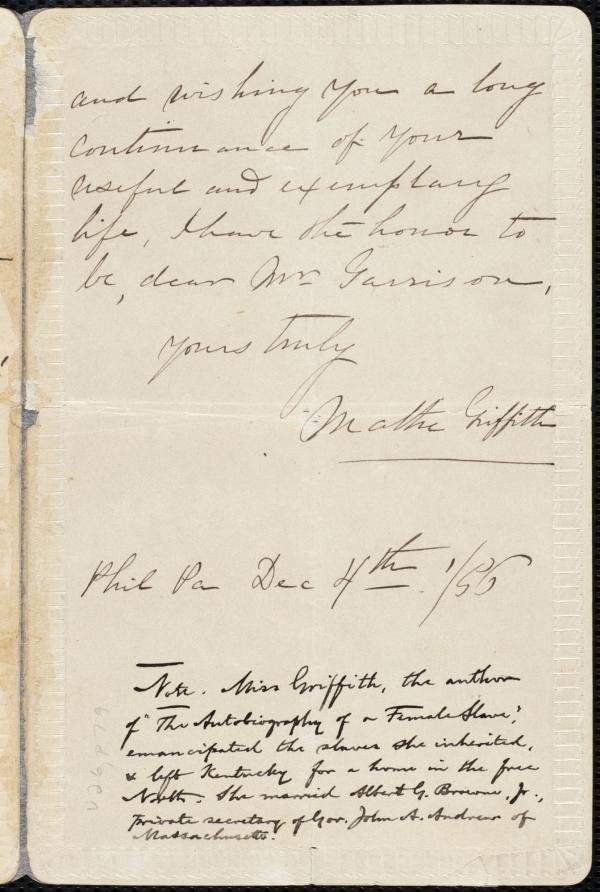 and wishing you a long
continuance of your
useful and exemplary
life, I have the honor to
be, dear Mr Garrison,
yours truly
Mattie Griffith
Phil Pa Dec 4th /56
Note. Miss Griffith, the author
of "The Autobiography of a Female Slave",
emancipated the slaves she inherited,
& left Kentucky for a home in the free
North. She married Albert G. Browne, Jr.,
private secretary of Gov. John A. Andrew of
Massachusetts.